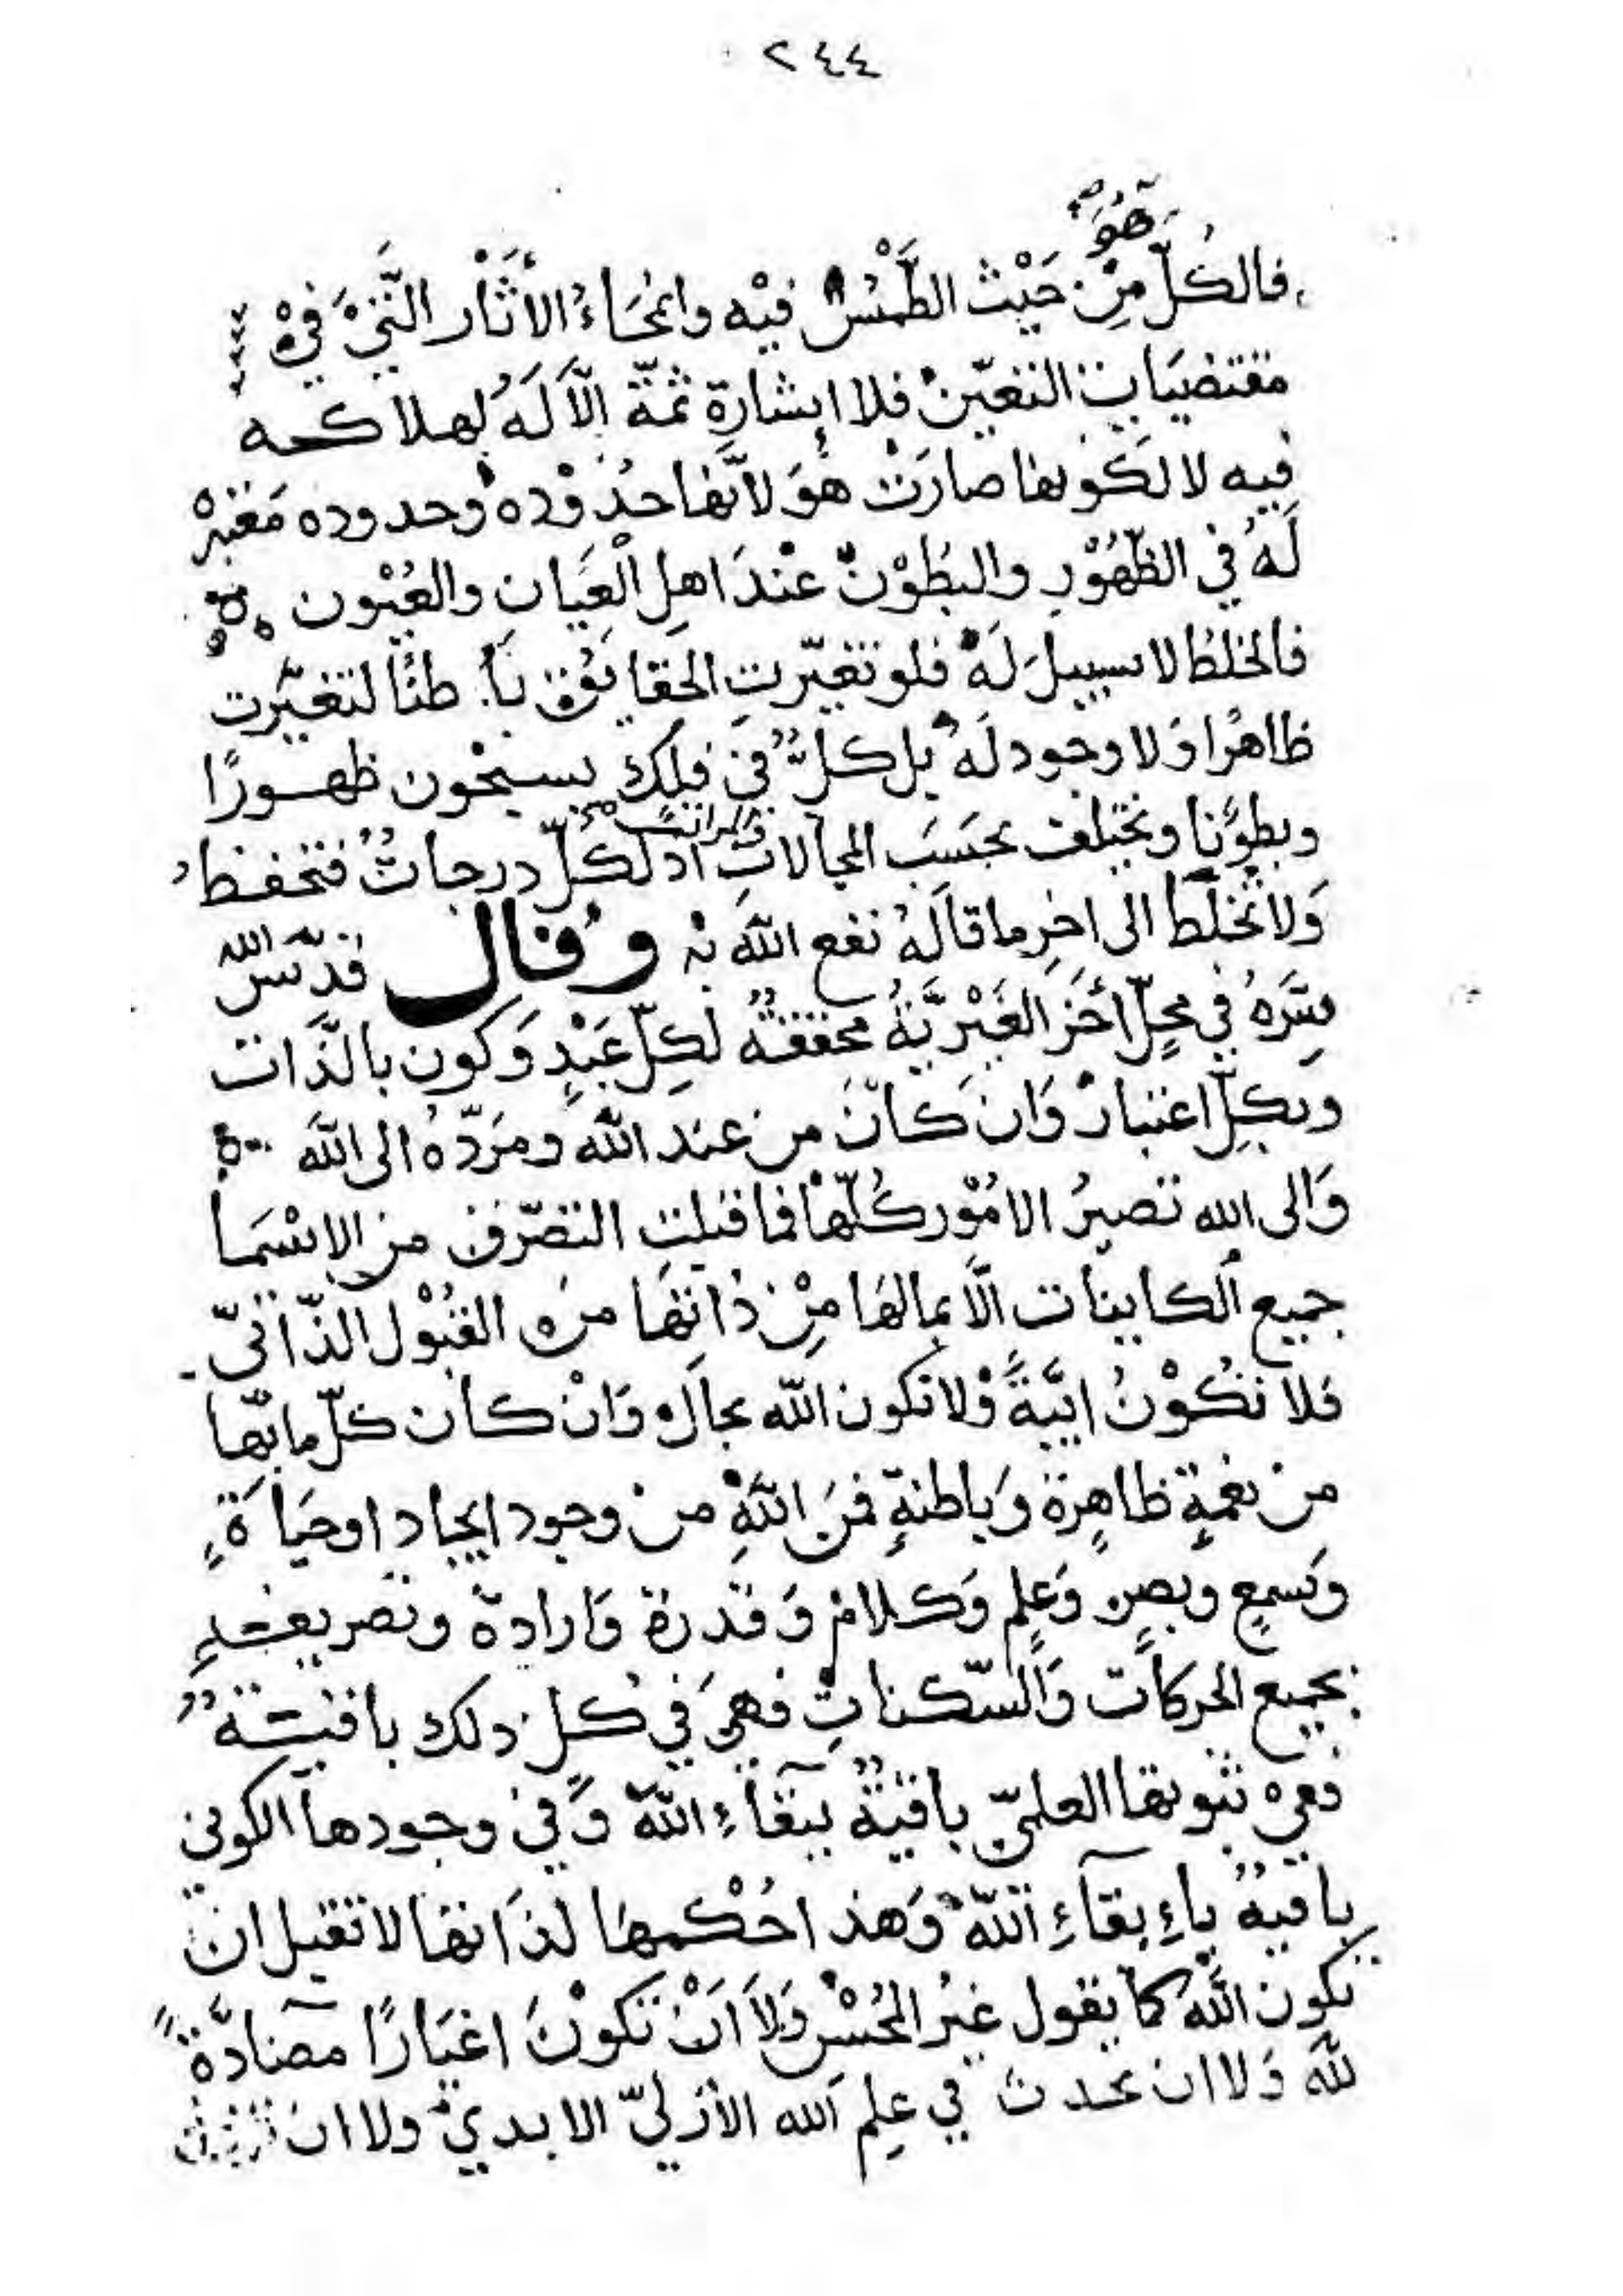 ٢٤٤
هُوَ صح
فالكُلّ مِنْ حَيْث الطَّمْسُ فيْه وانمحَاءُ الأثَار الَّتيْ فيْ
مقتضيَاتِ التعيّنْ فلا إشارة ثمّة الّا لَهُ لهلاكه
فيه لا لكونها صارَتْ هوَ لانّها حدُوْده وحدوده مغيره
لَهُ في الظّهُوْرِ والبطُوْن عنْدَ اهلِ العِيَانِ والعُيْون
فالخلطُ لا سبيلَ لَهُ فلو تغيّرتِ الحقايُق بَاطنًا لتغيّرت
ظاهرًا وَلا وجود لَهُ بل كلٌّ في فلكٍ يسبحُون ظهورًا
وبطونًا وتختلف بحَسَبِ المجالاتِ والمراتب صح اذ لكُلّ درجاتٌ فتحفظ
وَلا تُخَلّط الى اخِرِ ما قالَهُ نفع اللّه به وقال قدّسَ اللّه
سِرَّهُ في محلٍّ أخَرَ الغَيْريَّةُ محققةٌ لكلّ عَبْدٍ وَكون بالذَّات
وبكلِّ اعتبارٍ وَان كانَ من عند اللّه ومَردّهُ الى اللّه
وَالى الله تصيرُ الامُوْر كُلّها فما قبلتِ التصّرف من الاسْمَا
جميع الكاينات الّا بمالهَا مِنْ ذاتِهَا من القبُوْل الذّاتيّ
فلا تكُوْنُ ايَّيةً وْلا تكون اللّه بحالٍ وَانْ كان كلّ ما بها
من نعمةٍ ظاهِرة وَباطنةٍ فمَن اللّهِ من وجود ايجاد اوحيَاةٍ
وَسمعٍ وبصرٍ وَعلمٍ وَكلامٍ وَقدرة وَارادة وتصريف
بجميع الحركات وَالسّكناتِ فهيَ في كُلّ ذلك باقيةٌ
ففي ثبوتها العلميّ باقيةٌ ببقآءِ اللّه وَفي وجودها الكوني
باقيةٌ بإبقآءِ اللّه وَهذا حُكْمهَا لذاتها لا تقبل ان
تكون اللّه كما يقول غيرُ المحُسْنِ وَلاَ انْ تكونَ اغيَارًا مضادَّةً
للّه وَلا ان تحدث في علِم الله الأزليّ الابديّ ولا ان